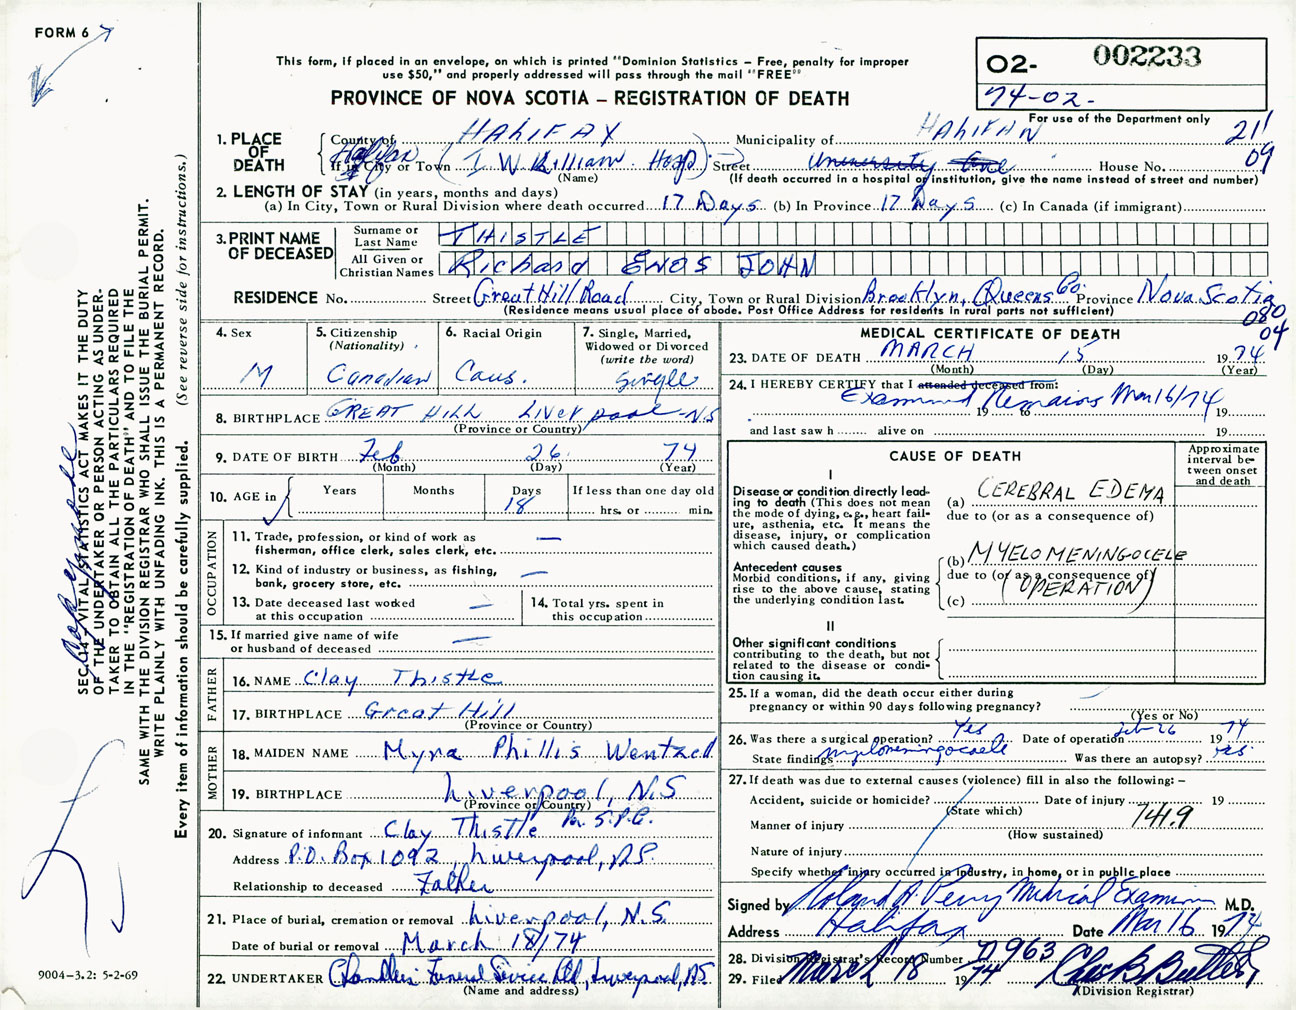 FORM 6
This form, if placed in an envelope, on which is printed "Dominion Statistics – Free, penalty for improper
use $50," and properly addressed will pass through the mail "FREE"
PROVINCE OF NOVA SCOTIA – REGISTRATION OF DEATH
O2- 002233
74-02-
For use of the Department only
211
09
1. PLACE OF DEATH
County of HALIFAX Municipality of HALIFAX
If in City or Town Halifax (I W Killiam Hosp) Street University Ave House No.
(Name) (If death occurred in a hospital or institution, give the name instead of street and number)
2. LENGTH OF STAY (in years, months and days)
(a) In City, Town or Rural Division where death occurred 17 Days (b) In Province 17 Days (c) In Canada (if immigrant)
3. PRINT NAME OF DECEASED
Surname or Last Name THISTLE
All Given or Christian Names Richard ENOS JOHN
RESIDENCE No. Street Great Hill Road City, Town or Rural Division Brooklyn, Queens Co. Province Nova Scotia
(Residence means usual place of abode. Post Office Address for residents in rural parts not sufficient)
080
04
4. Sex M
5. Citizenship (Nationality) Canadian
6. Racial Origin Caus.
7. Single, Married, Widowed or Divorced (write the word) Single
8. BIRTHPLACE GREAT HILL Liverpool N.S
(Province or Country)
9. DATE OF BIRTH Feb 26 74
(Month) (Day) (Year)
10. AGE in Years Months Days 18 If less than one day old hrs. or min.
OCCUPATION
11. Trade, profession, or kind of work as fisherman, office clerk, sales clerk, etc. —
12. Kind of industry or business, as fishing, bank, grocery store, etc. —
13. Date deceased last worked at this occupation —
14. Total yrs. spent in this occupation
15. If married give name of wife or husband of deceased —
FATHER
16. NAME Clay Thistle
17. BIRTHPLACE Great Hill
(Province or Country)
MOTHER
18. MAIDEN NAME Myra Phillis Wentzell
19. BIRTHPLACE Liverpool, N.S
(Province or Country)
20. Signature of informant Clay Thistle Per S.P.C.
Address P.O. Box 1092, Liverpool, N.S.
Relationship to deceased Father
21. Place of burial, cremation or removal Liverpool, N.S.
Date of burial or removal March 18/74
22. UNDERTAKER Chandlers Funeral Service Ltd, Liverpool, N.S
(Name and address)
MEDICAL CERTIFICATE OF DEATH
23. DATE OF DEATH MARCH 15 1974
(Month) (Day) (Year)
24. I HEREBY CERTIFY that I attended deceased from:
Examined Remains Mar 16/74
19 to 19
and last saw h alive on 19
CAUSE OF DEATH
Approximate interval between onset and death
I
Disease or condition directly leading to death (This does not mean the mode of dying, e.g., heart failure, asthenia, etc. It means the disease, injury, or complication which caused death.)
(a) CEREBRAL EDEMA
due to (or as a consequence of)
Antecedent causes
Morbid conditions, if any, giving rise to the above cause, stating the underlying condition last.
(b) MYELOMENINGOCELE
due to (or as a consequence of)
(c) (OPERATION)
II
Other significant conditions
contributing to the death, but not related to the disease or condition causing it.
25. If a woman, did the death occur either during pregnancy or within 90 days following pregnancy? —
(Yes or No)
26. Was there a surgical operation? Yes Date of operation Feb-26 1974
State findings myelomeningocoele Was there an autopsy? Yes
27. If death was due to external causes (violence) fill in also the following: –
Accident, suicide or homicide? Date of injury 19
(State which)
741.9
Manner of injury
(How sustained)
Nature of injury
Specify whether injury occurred in industry, in home, or in public place
Signed by Roland A Perry Medical Examiner M.D.
Address Halifax Date Mar 16 1974
28. Division Registrar's Record Number 963
29. Filed March 18 1974
(Division Registrar)
SEC. 14, VITAL STATISTICS ACT MAKES IT THE DUTY
OF THE UNDERTAKER OR PERSON ACTING AS UNDER-
TAKER TO OBTAIN ALL THE PARTICULARS REQUIRED
IN THE "REGISTRATION OF DEATH" AND TO FILE THE
SAME WITH THE DIVISION REGISTRAR WHO SHALL ISSUE THE BURIAL PERMIT.
WRITE PLAINLY WITH UNFADING INK. THIS IS A PERMANENT RECORD.
Every item of information should be carefully supplied. (See reverse side for instructions.)
9004-3.2: 5-2-69